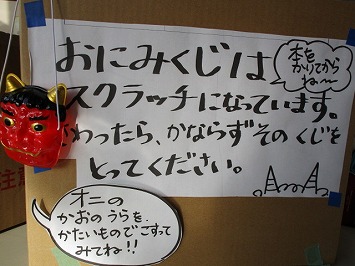 おにみくじは
本を
かりてから
ね〜
スクラッチになっています。
おわったら、かならずそのくじを
とってください。
オニの
かおのうらを、
かたいものでこすって
みてね!!
注意